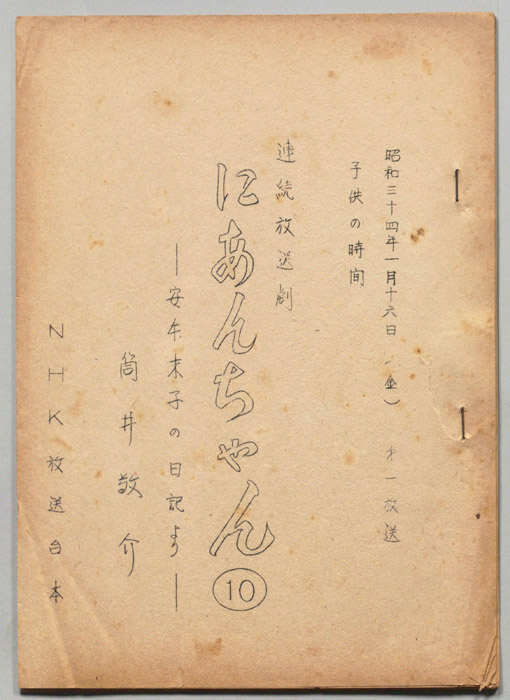 昭和三十四年一月十六日(金) 第一放送
子供の時間
連続放送劇
にあんちゃん⑩
―安本末子の日記より―
筒井敬介
NHK放送台本